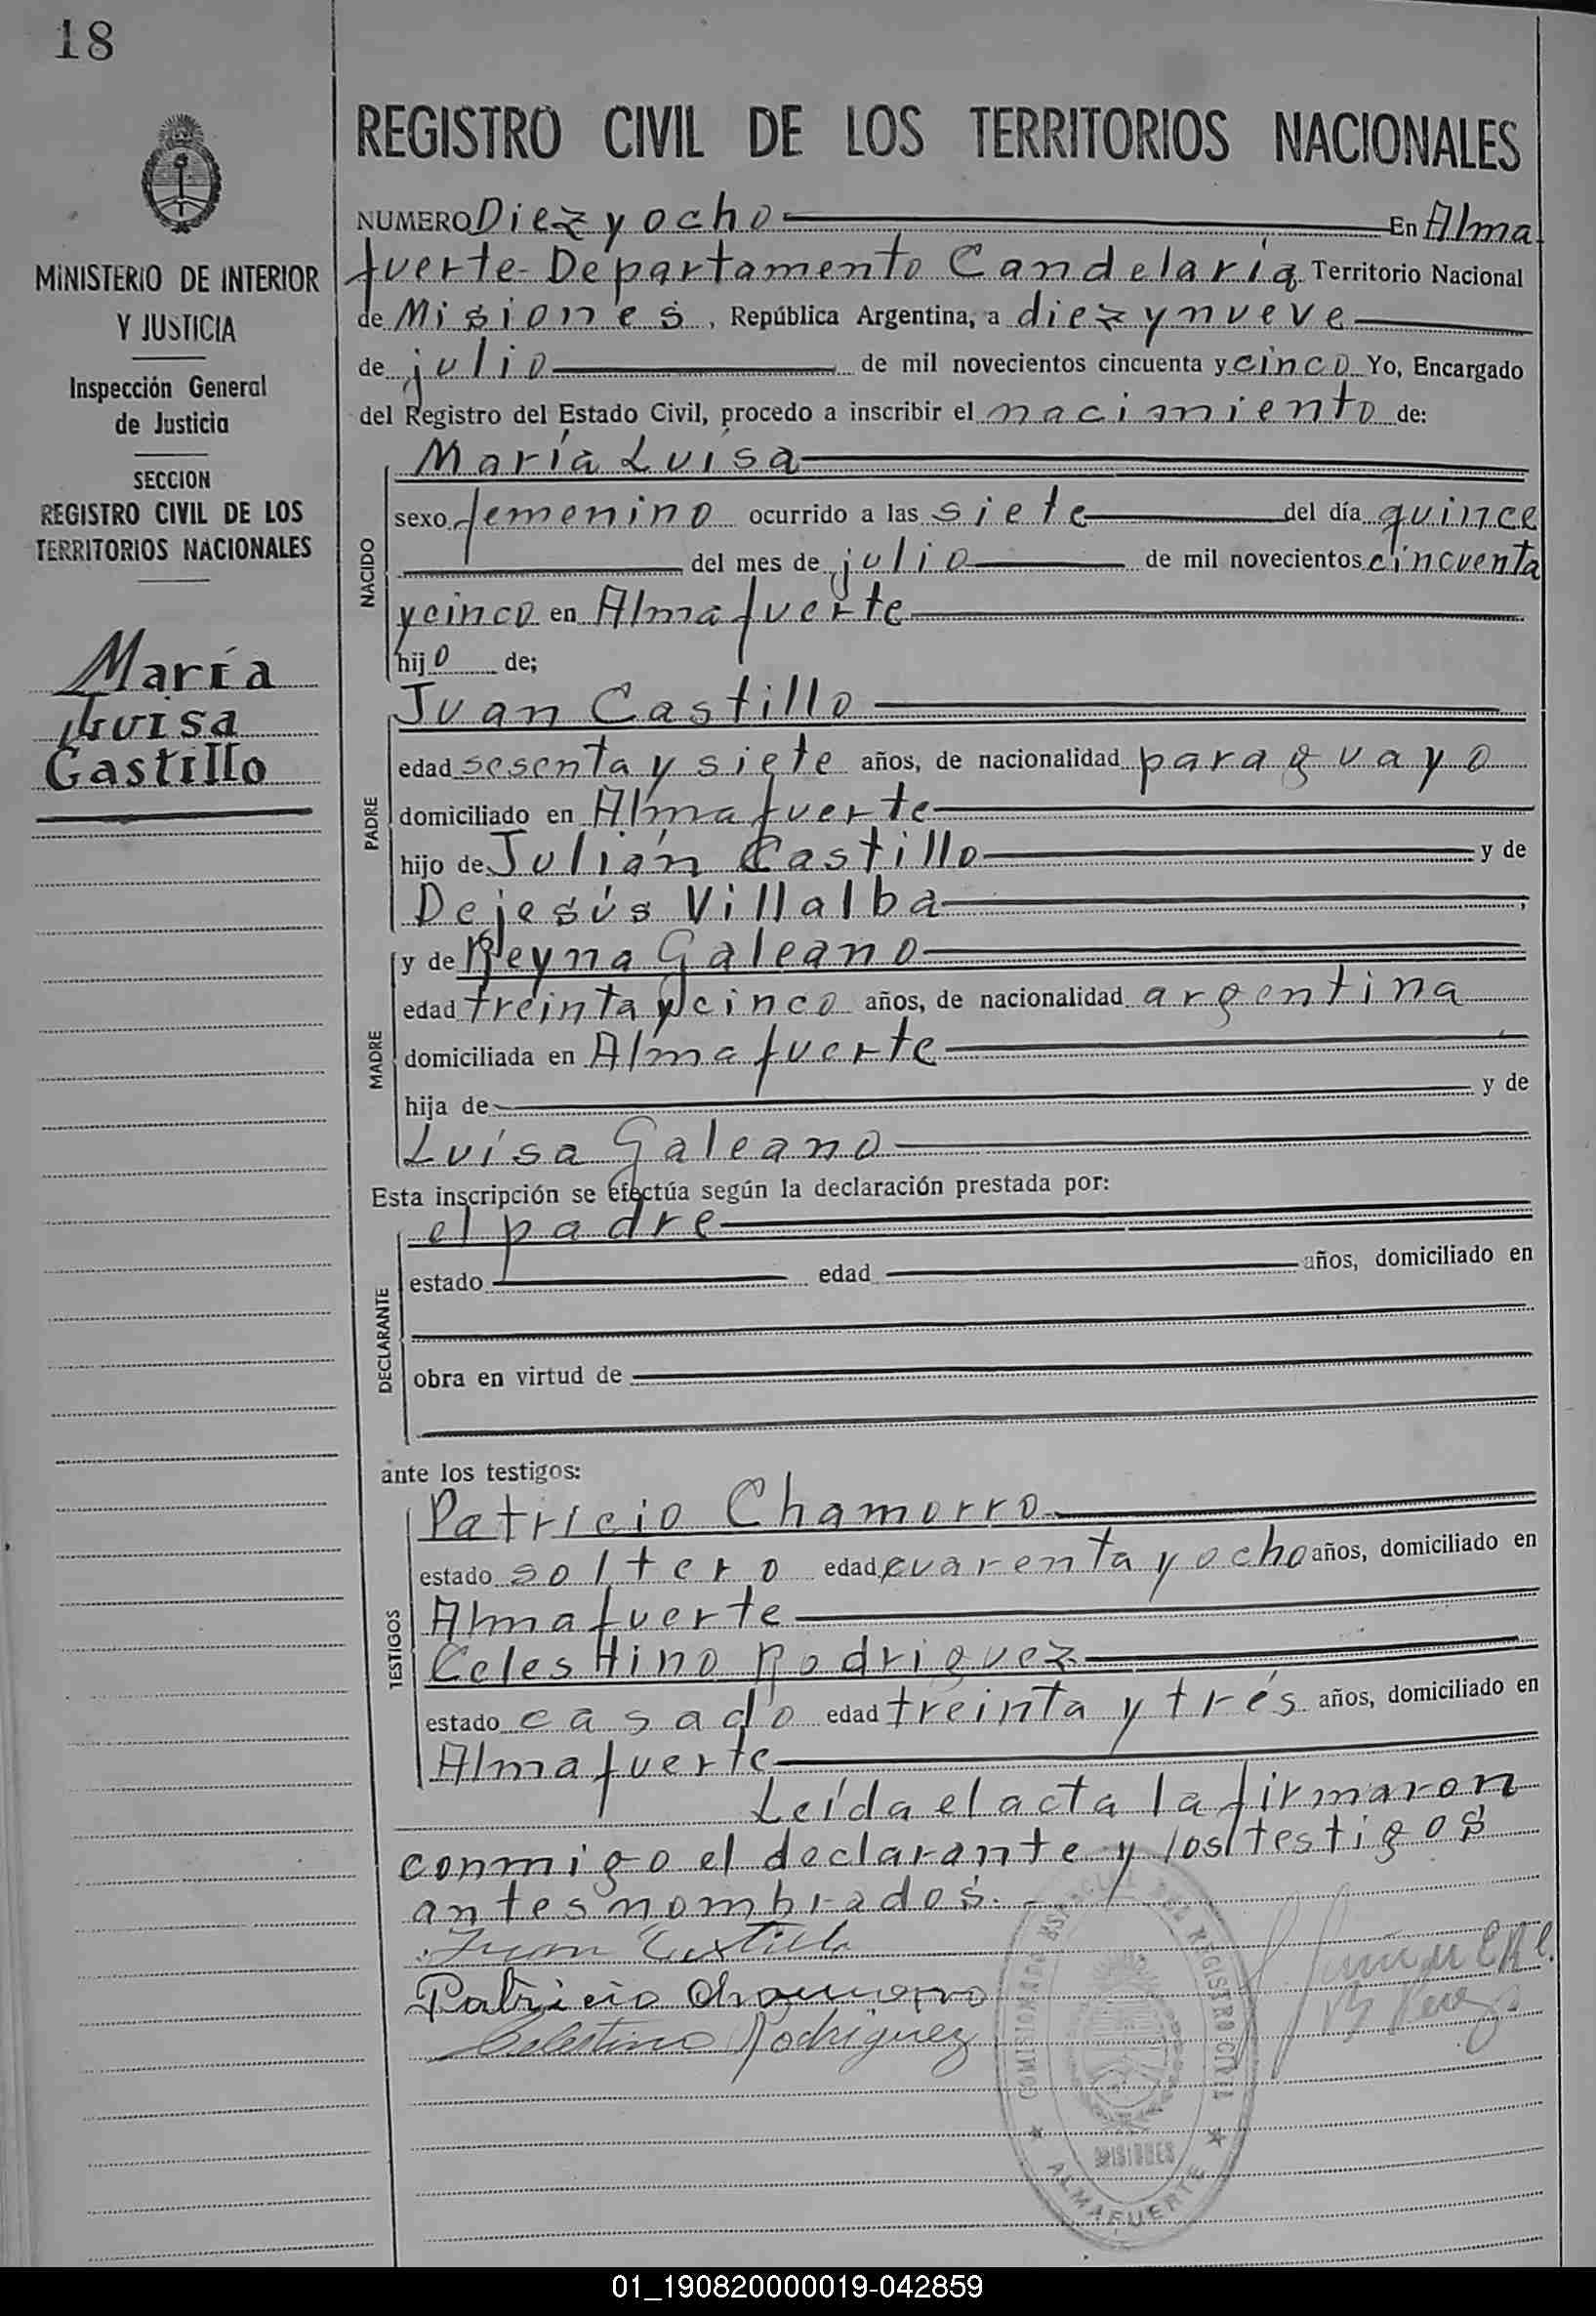 18
MINISTERIO DE INTERIOR
Y JUSTICIA
Inspección General
de Justicia
SECCION
REGISTRO CIVIL DE LOS
TERRITORIOS NACIONALES
María
Luisa
Castillo
REGISTRO CIVIL DE LOS TERRITORIOS NACIONALES
NUMERO Diez y ocho En Alma
fuerte - Departamento Candelaria Territorio Nacional
de Misiones, República Argentina, a diez y nueve
de julio de mil novecientos cincuenta y cinco Yo, Encargado
del Registro del Estado Civil, procedo a inscribir el nacimiento de:
NACIDO
María Luisa
sexo femenino ocurrido a las siete del día quince
del mes de julio de mil novecientos cincuenta
y cinco en Almafuerte
hijo de;
PADRE
Juan Castillo
edad sesenta y siete años, de nacionalidad paraguayo
domiciliado en Almafuerte
hijo de Julián Castillo y de
Dejesús Villalba,
MADRE
y de Reyna Galeano
edad treinta y cinco años, de nacionalidad argentina
domiciliada en Almafuerte
hija de y de
Luisa Galeano
Esta inscripción se efectúa según la declaración prestada por:
DECLARANTE
el padre
estado edad años, domiciliado en
obra en virtud de
ante los testigos:
TESTIGOS
Patricio Chamorro
estado soltero edad cuarenta y ocho años, domiciliado en
Almafuerte
Celestino Rodriguez
estado casado edad treinta y trés años, domiciliado en
Almafuerte
Leída el acta la firmaron
conmigo el declarante y los testigos
antes nombrados.-
Juan Castillo
Patricio Chamorro
Celestino Rodriguez
DEL REGISTRO CIVIL
MISIONES
ALMAFUERTE
01_190820000019-042859